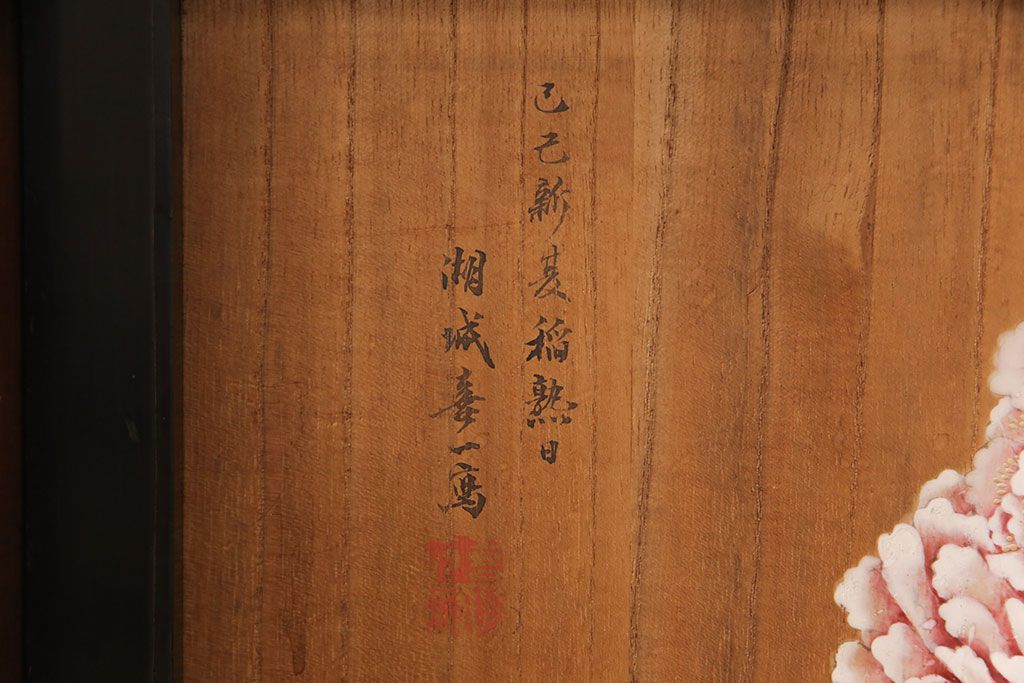 己巳新夏稲熟日
湖城喜一寫